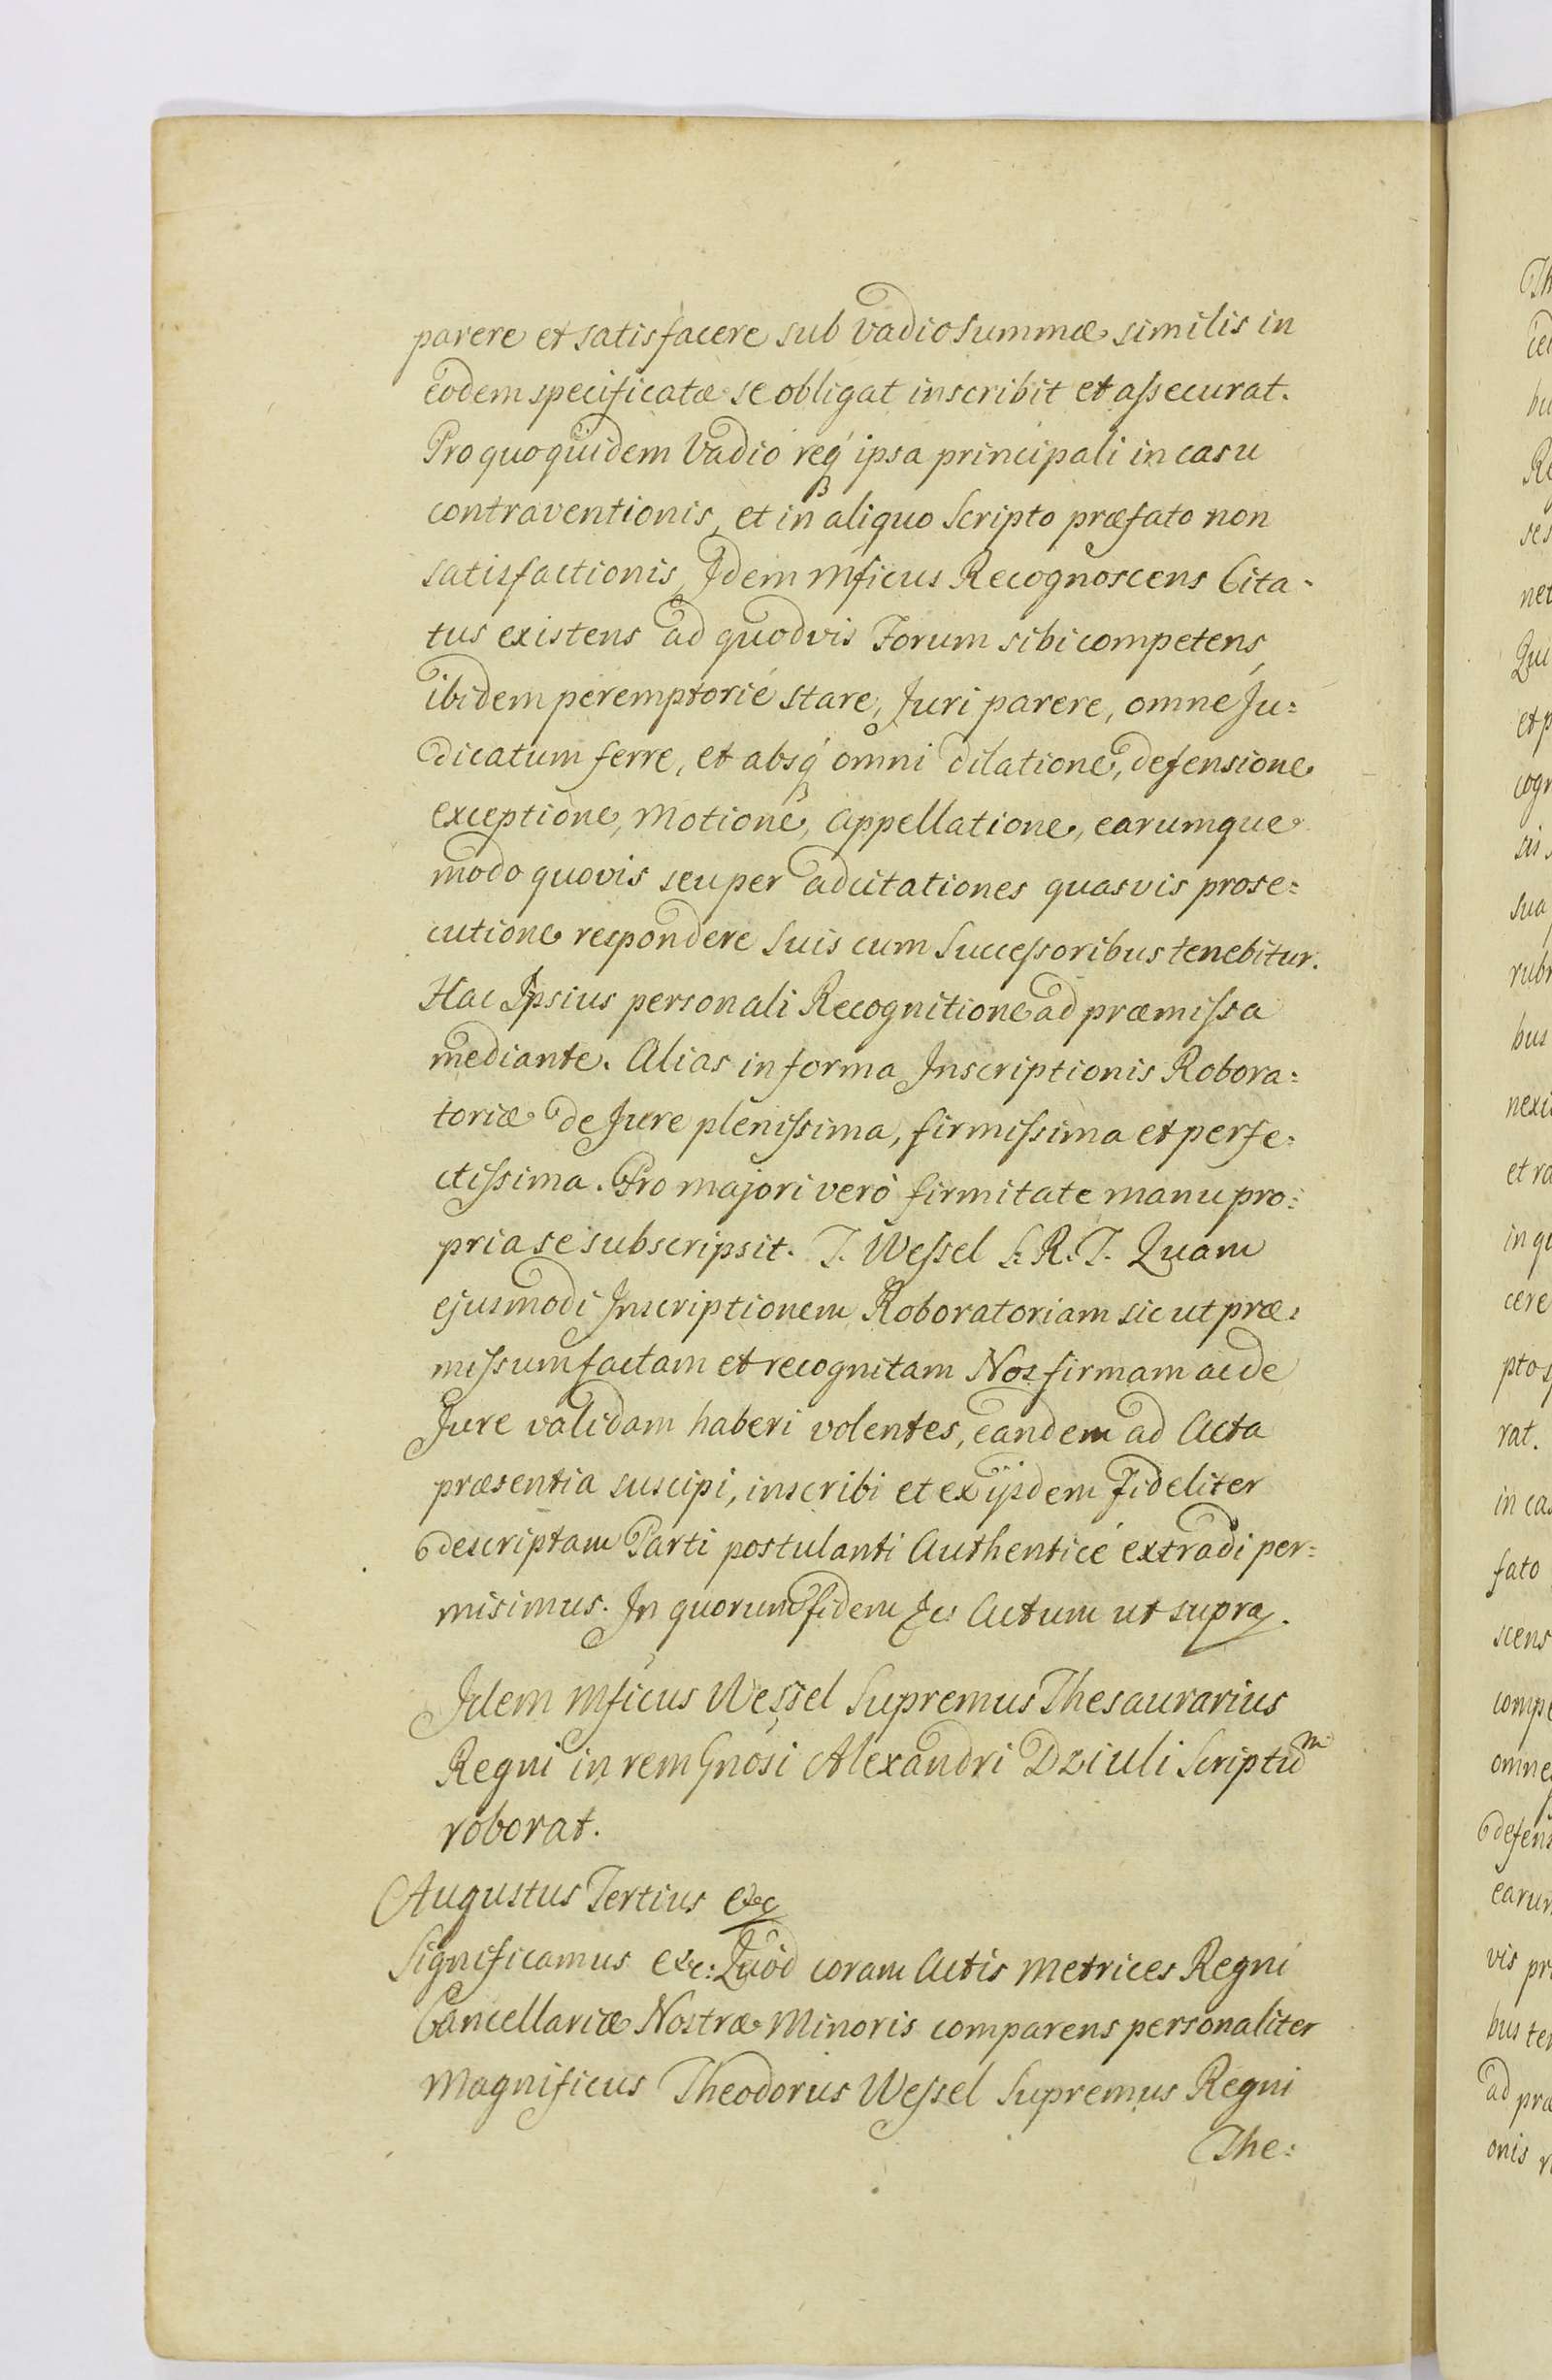 parere et satisfacere sub vadio summæ similis in
eodem specificatæ se obligat inscribit et assecurat.
Pro quo quidem Vadio req́ ipsa principali in casu
contraventionis, et in aliquo Scripto præfato non
satisfactionis, Idem Mficus Recognoscens Cita-
tus existens ad quodvis Forum sibi competens,
ibidem peremptorié stare, Juri parere, omne Ju=
dicatum ferre, et absq́ omni dilatione, defensione
exceptione, Motione, Appellatione, earumque
modo quovis seu per adcitationes quasvis prose=
cutione respondere Suis cum Successoribus tenebitur.
Hac Ipsius personali Recognitione ad præmissa
mediante. Alias in forma Inscriptionis Robora=
toriæ de Jure plenissima, firmissima et perfe=
ctissima. Pro majori verò firmitate manu pro=
pria se subscripsit. T. Wessel S. R. T. Quam
ejusmodi Inscriptionem Roboratoriam sic ut præ=
missum factam et recognitam Nos firmam ac de
Jure validam haberi volentes, eandem ad Acta
præsentia suscipi, inscribi et ex ijsdem fideliter
descriptam Parti postulanti Authenticé extradi per=
misimus. In quorum fidem &c Actum ut supra.
Idem Mficus Wessel Supremus Thesaurarius
Regni in rem Gnosi Alexandri Dziuli Scriptũ
roborat.
Augustus Tertius &c
Significamus &c: Quòd coram Actis Metrices Regni
Cancellariæ Nostræ Minoris comparens personaliter
Magnificus Theodorus Wessel Supremus Regni
The=